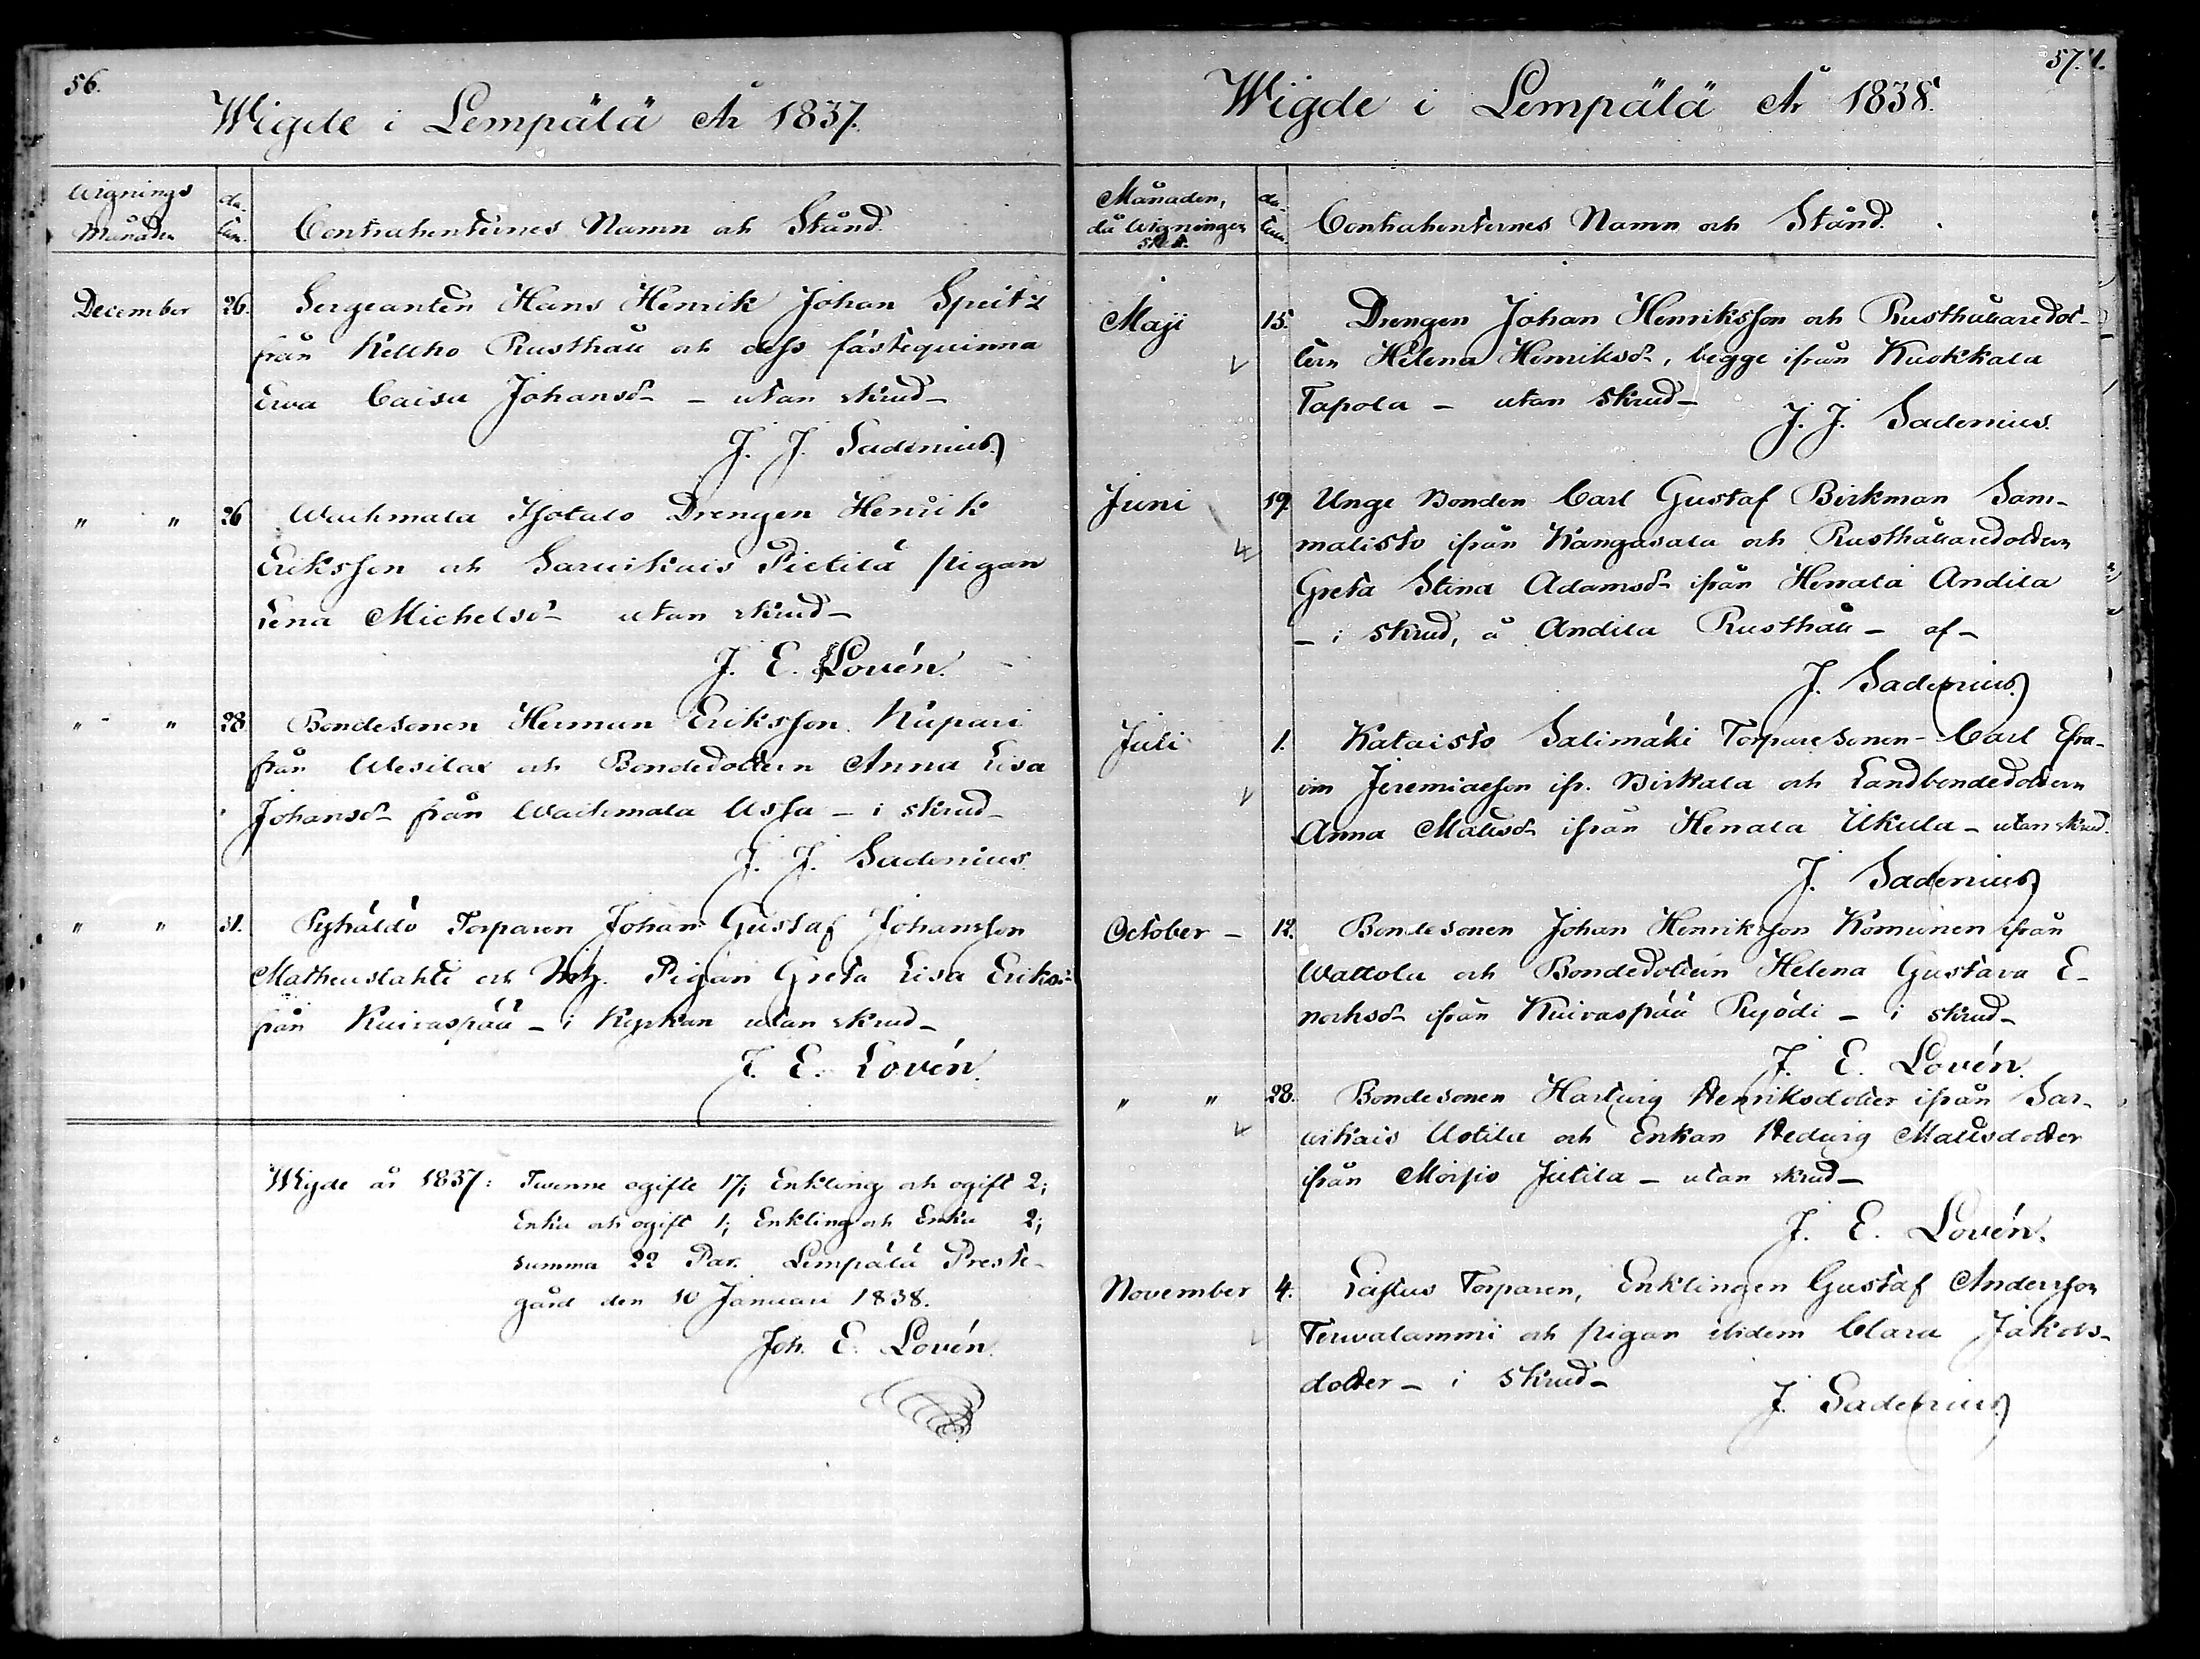 56.
Wigde i Lempälä År 1837.
Wignings Månaden
da- tum.
Contrahenternes Namn och Stånd.
December 26. Sergeanten Hans Henrik Johan Speitz
från Kellho Rusthåll och dess fästeqvinna
Ewa Caisa Johansd:r – utan skrud –
J. J. Sadenius.
" " 26 Wachmala Isotalo Drengen Henrik
Eriksson och Sarvikais Pietilä pigan
Lena Michelsd:r utan skrud –
J. E. Lovén.
" " 28 Bondesonen Herman Eriksson Kupari
från Wesilax och Bondedottern Anna Lisa
Johansd:r från Wachmala Ussa – i skrud –
J. J. Sadenius.
" " 31. Pyhäldö Torparen Johan Gustaf Johansson
Matheuslahti och Pigan Greta Lisa Eriksd:r
från Kuivaspää – i Kyrkan utan skrud –
J. E. Lovén.
Wigde år 1837: Tvenne ogifte 17; Enkling och ogift 2;
Enka och ogift 1; Enkling och Enka 2;
summa 22 Par. Lempälä Preste-
gård den 10 Januari 1838.
Joh. E. Lovén.
57.
Wigde i Lempälä År 1838.
Månaden, då Wigningen skett.
da- tum.
Contrahenternes Namn och Stånd.
Maji 15. Drengen Johan Henriksson och Rusthållaredot-
tern Helena Henriksd:r, begge ifrån Kuokkala
Tapola – utan skrud –
J. J. Sadenius.
Juni 19. Unge Bonden Carl Gustaf Birkman Sam-
malisto ifrån Kangasala och Rusthållaredottern
Greta Stina Adamsd:r ifrån Henala Andila
– i skrud, å Andila Rusthåll – af –
J. Sadenius
Juli 1. Kataisto Salimäki Torparesonen Carl Efra-
im Jeremiaesson ifr. Birkala och Landbondedottern
Anna Mattsd:r ifrån Henala Ukula – utan skrud.
J. Sadenius
October – 12. Bondesonen Johan Henriksson Komunen ifrån
Wattola och Bondedottern Helena Gustava E-
nochsd:r ifrån Kuivaspää Ryödi – i skrud –
J. E. Lovén.
" " 28. Bondesonen Hartwig Henriksdotter ifrån Sar-
vikais Uotila och Enkan Hedwig Mattsdotter
ifrån Moisio Jutila – utan skrud –
J. E. Lovén.
November 4. Lastus Torparen, Enklingen Gustaf Andersson
Tervalammi och pigan ibidem Clara Jakobs-
dotter – i skrud –
J. Sadenius